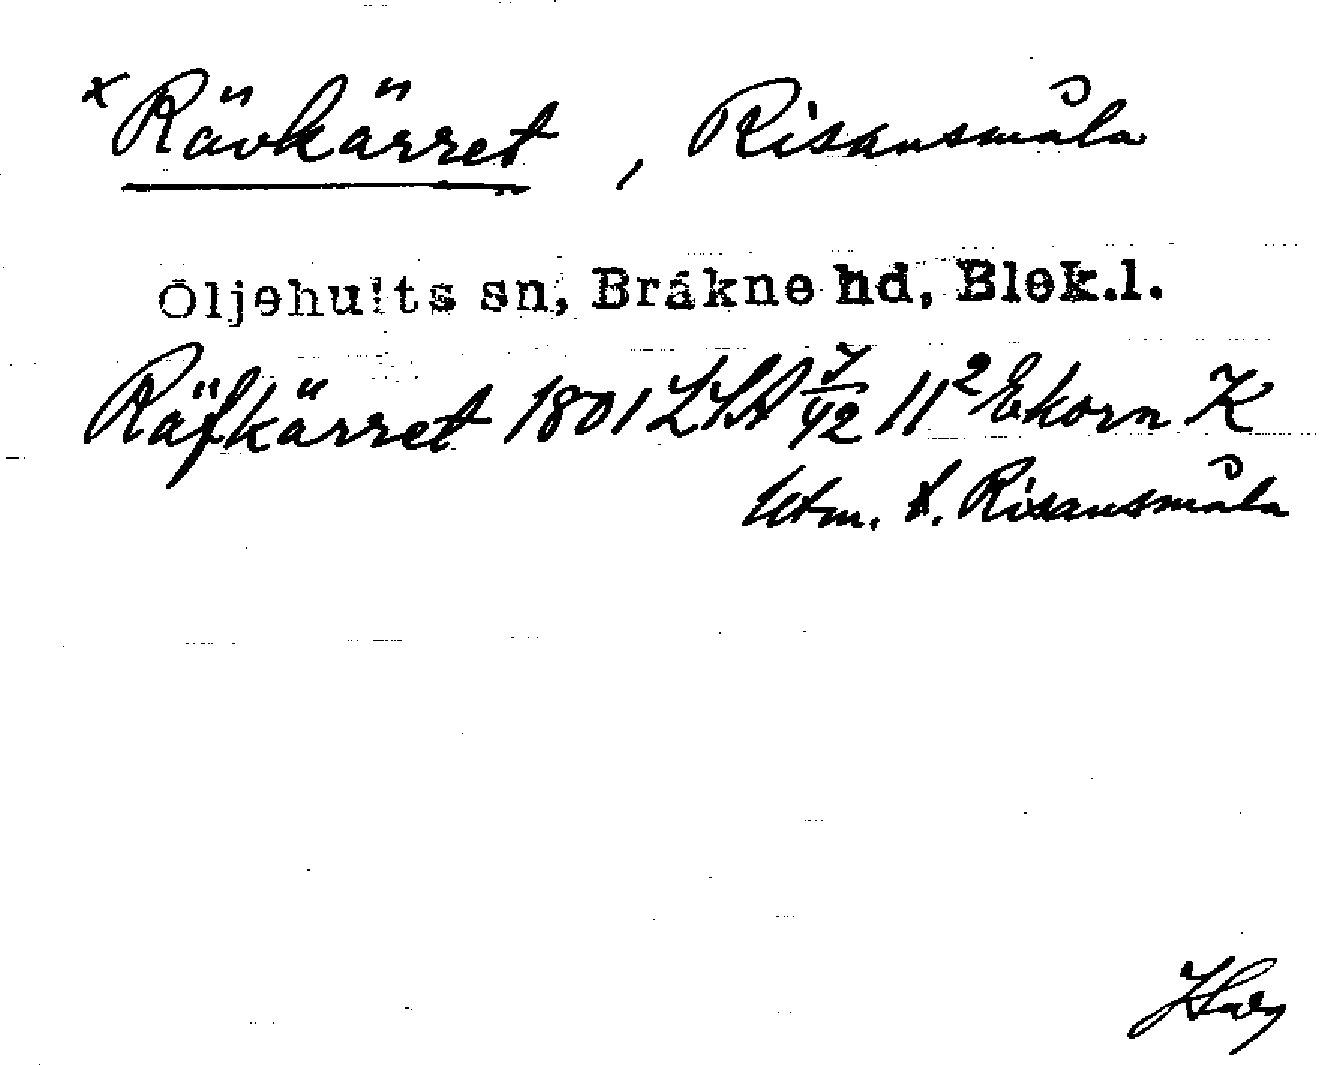 x Rävkärret, Risansmåla
Öljehults sn, Bräkne hd, Blek.l.
Räfkärret 1801 LSA 7/12 11² Ekorn K
Utm. t. Risansmåla